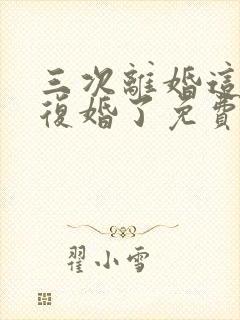 三次離婚這
復婚了免費
翟小雪